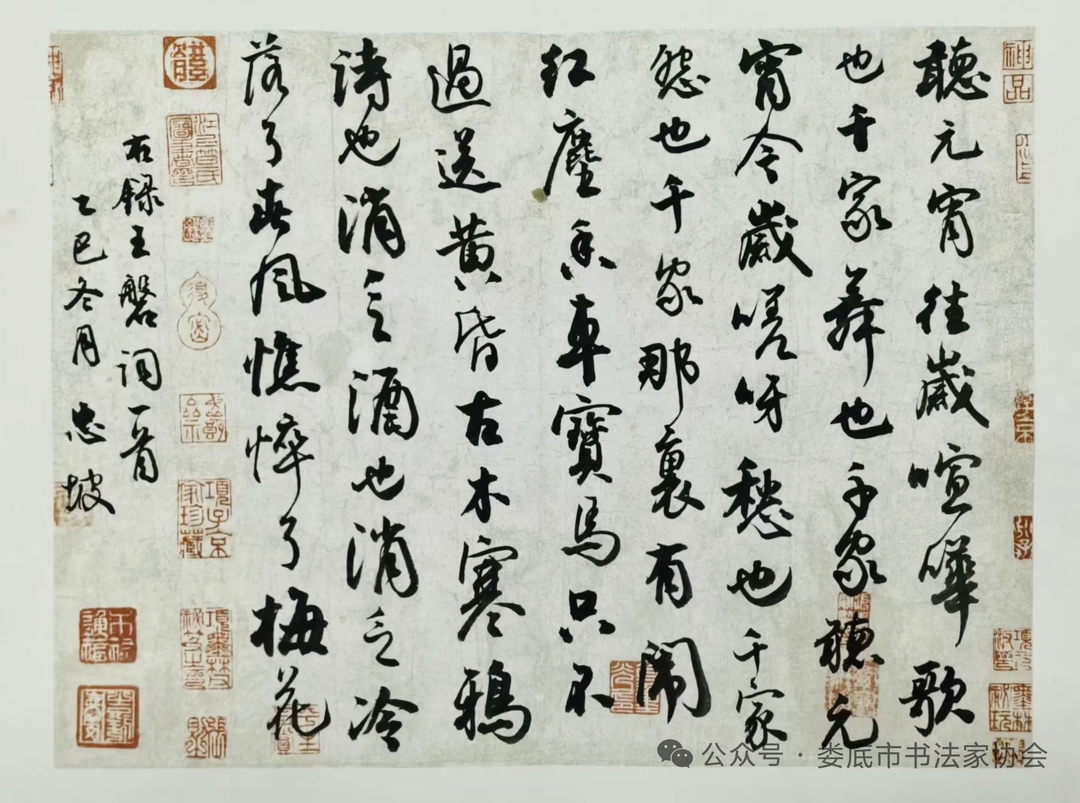 聽元宵往歲喧嘩歌
也千家舞也千家聽元
宵今歲嗟呀愁也千家
怨也千家那裏有鬧
紅塵香車寶馬只不
過送黃昏古木寒鴉
詩也消乏酒也消乏冷
落了春風憔悴了梅花
右錄王磐詞一首
乙巳冬月 忠坡
神品
項子京家珍藏
公众号 · 娄底市书法家协会